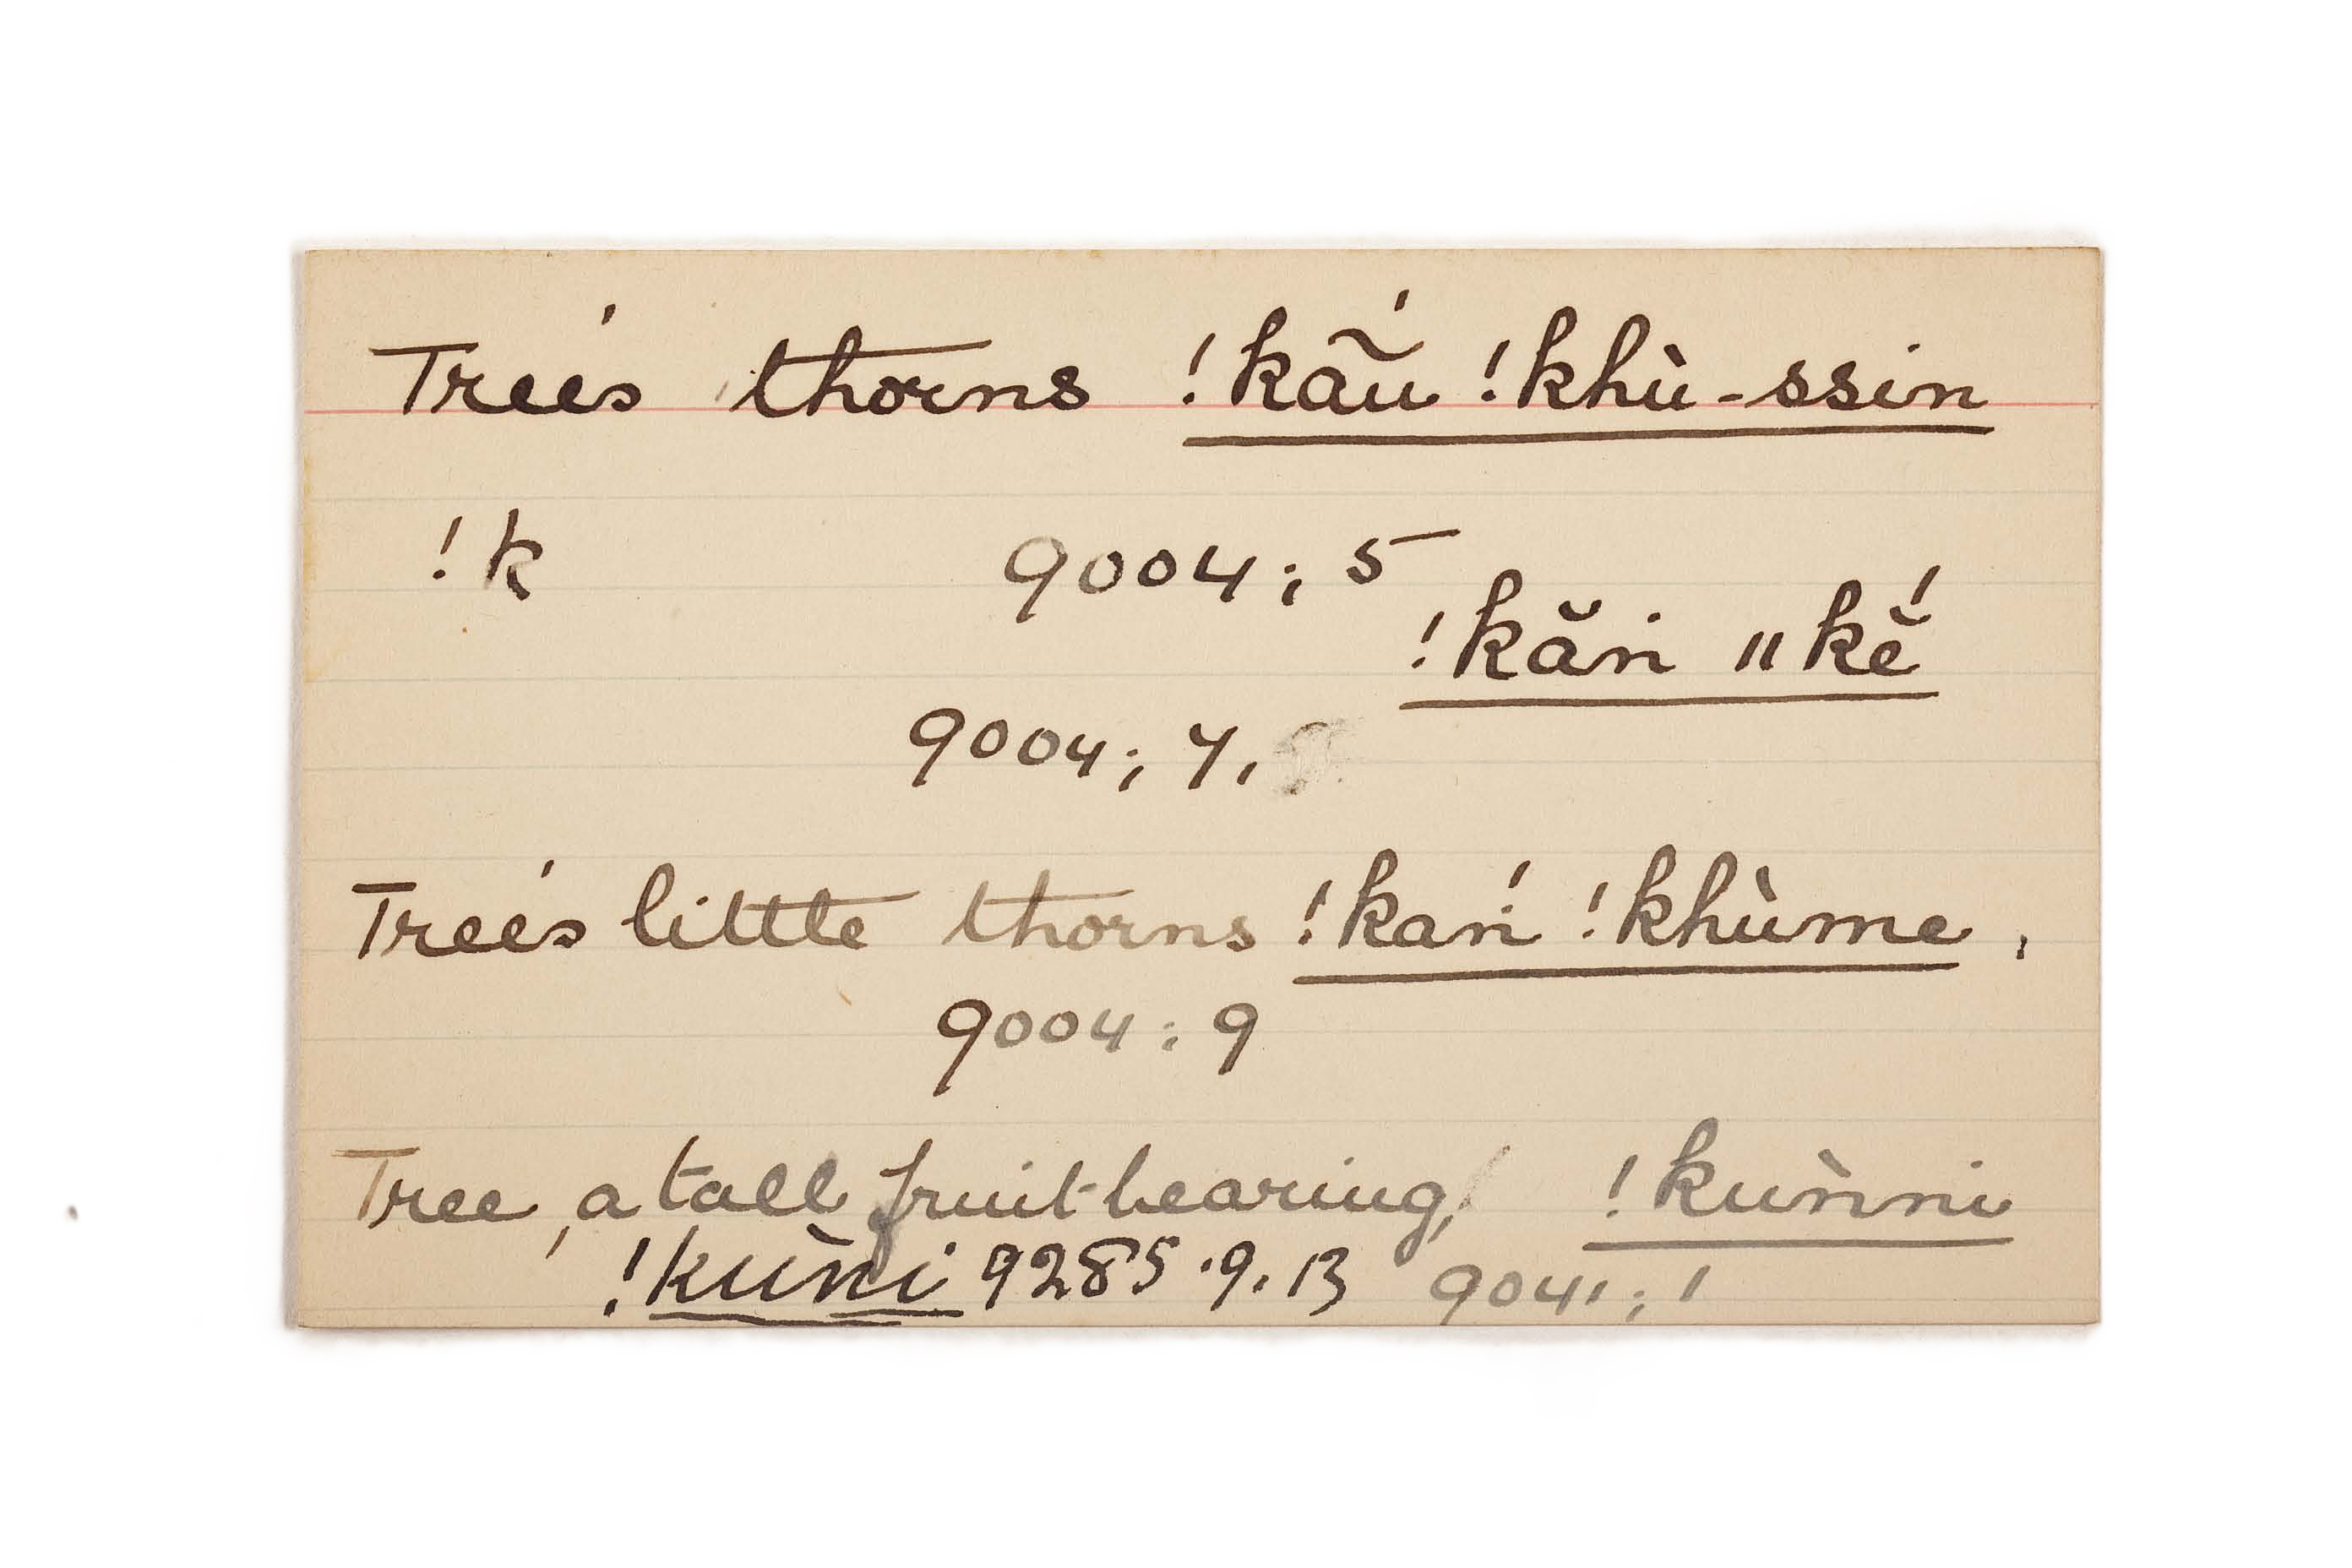 Tree's thorns !kã́u !khù-ssin
!k 9004; 5
!kăn ǁkĕ́
9004; 7,
Tree's little thorns !kań !khùme,
9004; 9
Tree, a tall fruit-bearing, !kùnni
!kùni 9285.9.13 9041; 1